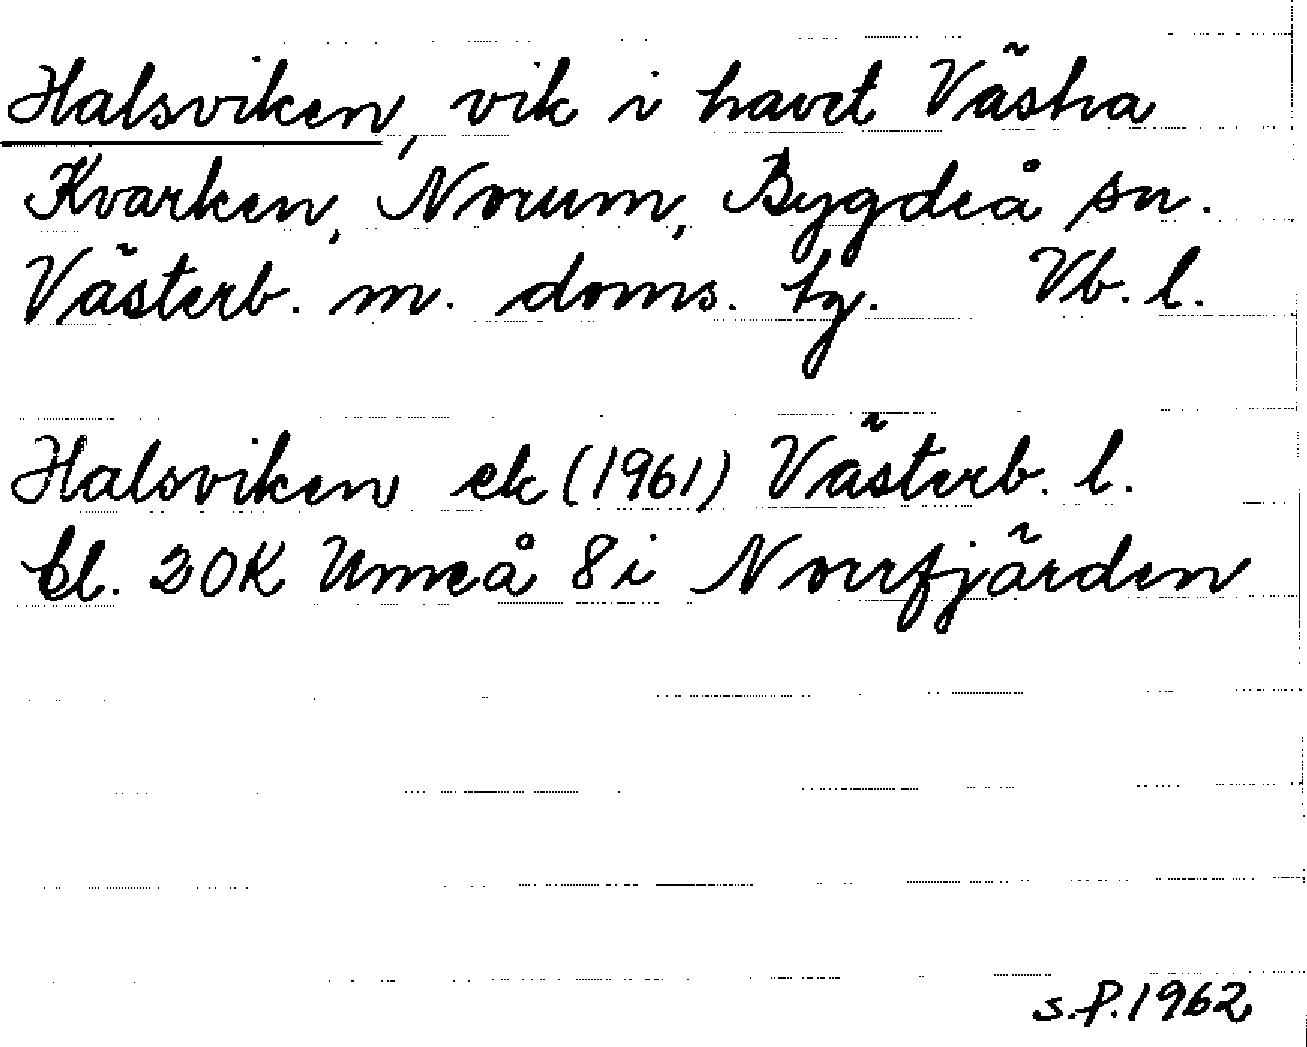 Halsviken, vik i havet Västra
Kvarken, Norum, Bygdeå sn.
Västerb. m. doms. tg. Vb. l.
Halsviken ek (1961) Västerb. l.
bl. 20K Umeå 8i Norrfjärden
S.P.1962